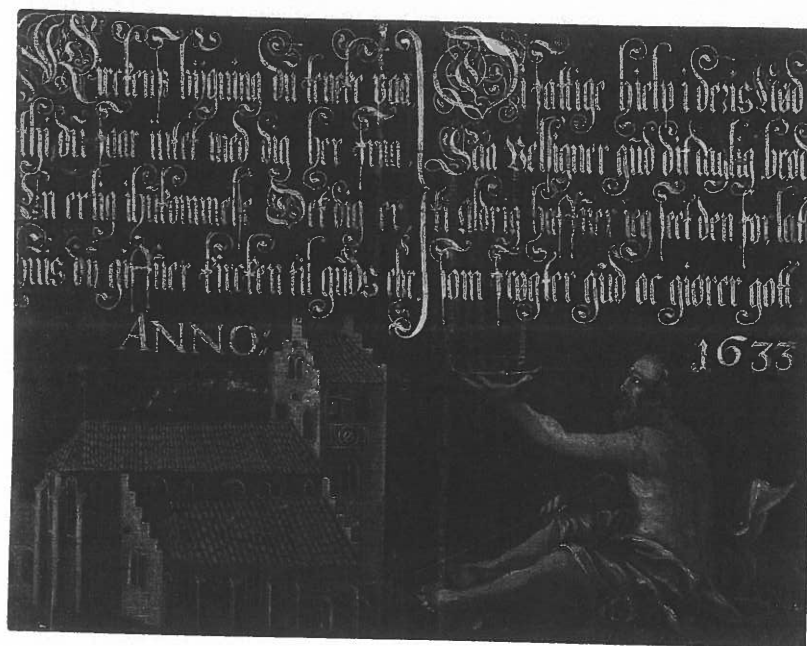 Kirckens bÿgning du tencke paa
thj du faar intet med dig her fraa
En erlig ihukommelse Det dig er
huis du giffuer Kircken til guds ehr.
Di fattige hielp i deris Nød
Saa Velsigner gud dit daglig brød
ti aldrig haffuer jeg seet den forlat
som frögter gud oc giører gott
ANNO:
1633